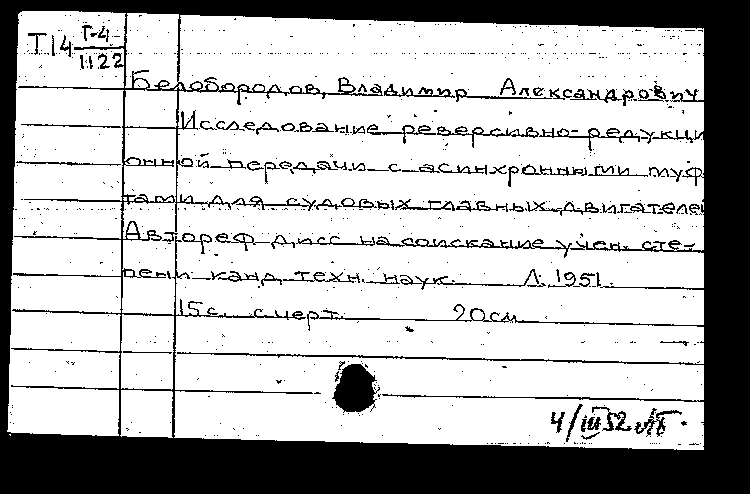 Т14 Т-4
1122
Белобородов, Владимир Александрович
Исследование реверсивно-редукци
онной передачи с асинхронными муф
тами для судовых главных двигателей
Автореф дисс на соискание учен. сте-
пени канд. техн. наук. Л. 1951.
15с. с черт. 20см
4/III 52